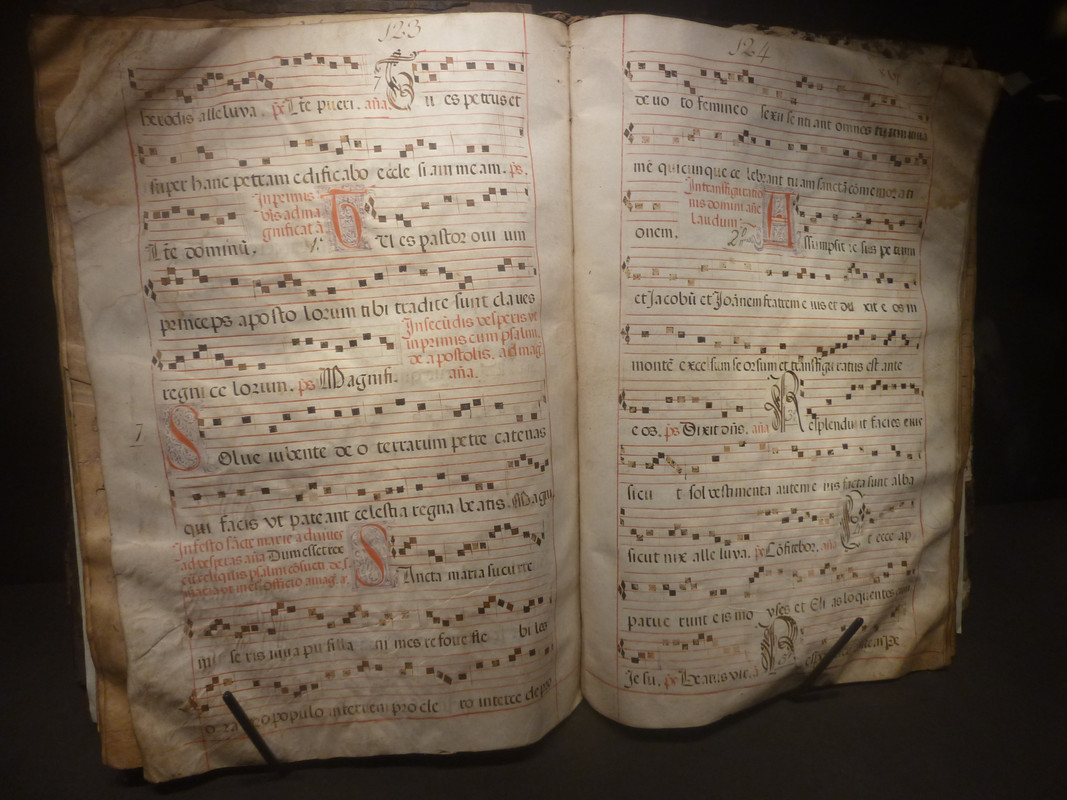 123
herodis alleluya. ps Lte pueri. aña T u es petrus et
super hanc petram edificabo eccle si am me am. ps.
In primis
vis ad ma
gnificat à
Lte dominū. 1.ª T U es pastor oui um
princeps aposto lorum tibi tradite sunt claues
In secūdis vesperis vt
in primis cum psalm.
de apostolis. ad mag.
aña.
regni ce lorum. ps Magnifi.
7 S Olue iubente de o terrarum petre catenas
qui facis vt pateant celestia regna beatis. Magn
In festo sācte marie ad niues
ad vesperas aña Dum esset rex
S Ancta maria sucurre
mi se ris iuua pu silla ni mes re foue fle bi les
o ra pro populo interueni pro cle ro interce de pro
124
de uo to femineo sexu se nti ant omnes tu um iuua
mē quicunque ce lebrant tu am sanctā cōme mor a ti
In transfiguratio
nis domini añe
laudum
onem. 2.ª A ssumpsit ie sus pe trum
et Jacobū et Joānem fratrem e ius et du xit e os in
montē excelsum se orsum et transfigu ratus est ante
e os. ps Dixit dñs. aña R esplendu it facies eius
sicu t sol vestimenta autem e ius facta sunt alba
sicut nix alle luya. ps Cōfitebor. aña E t ecce ap
parue runt e is mo yses et Eli as loquentes
Je su. ps Beatus vir.